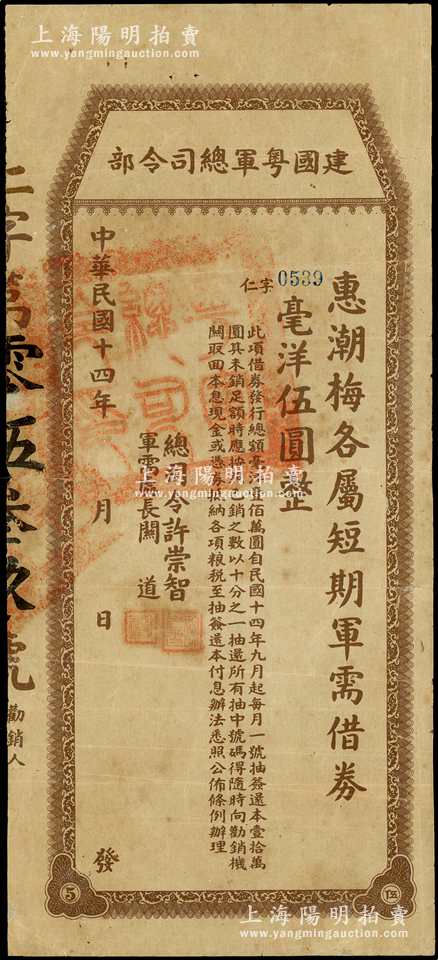 上海陽明拍賣
www.yangmingauction.com
建國粵軍總司令部
惠潮梅各屬短期軍需借券
毫洋伍圓整
仁字0539
此項借券發行總額毫洋壹佰萬圓自民國十四年九月起每月一號抽簽還本壹拾萬
圓其未銷足額時應按 銷之數以十分之一抽還所有抽中號碼得隨時向勸銷機
關取回本息現金或憑 納各項粮税至抽簽還本付息辦法悉照公佈條例辦理
總司令許崇智
軍需 長關道
中華民國十四年 月 日 發
仁字第零伍叁玖號
勸銷人
5
伍
上海陽明拍賣
www.yangmingauction.com